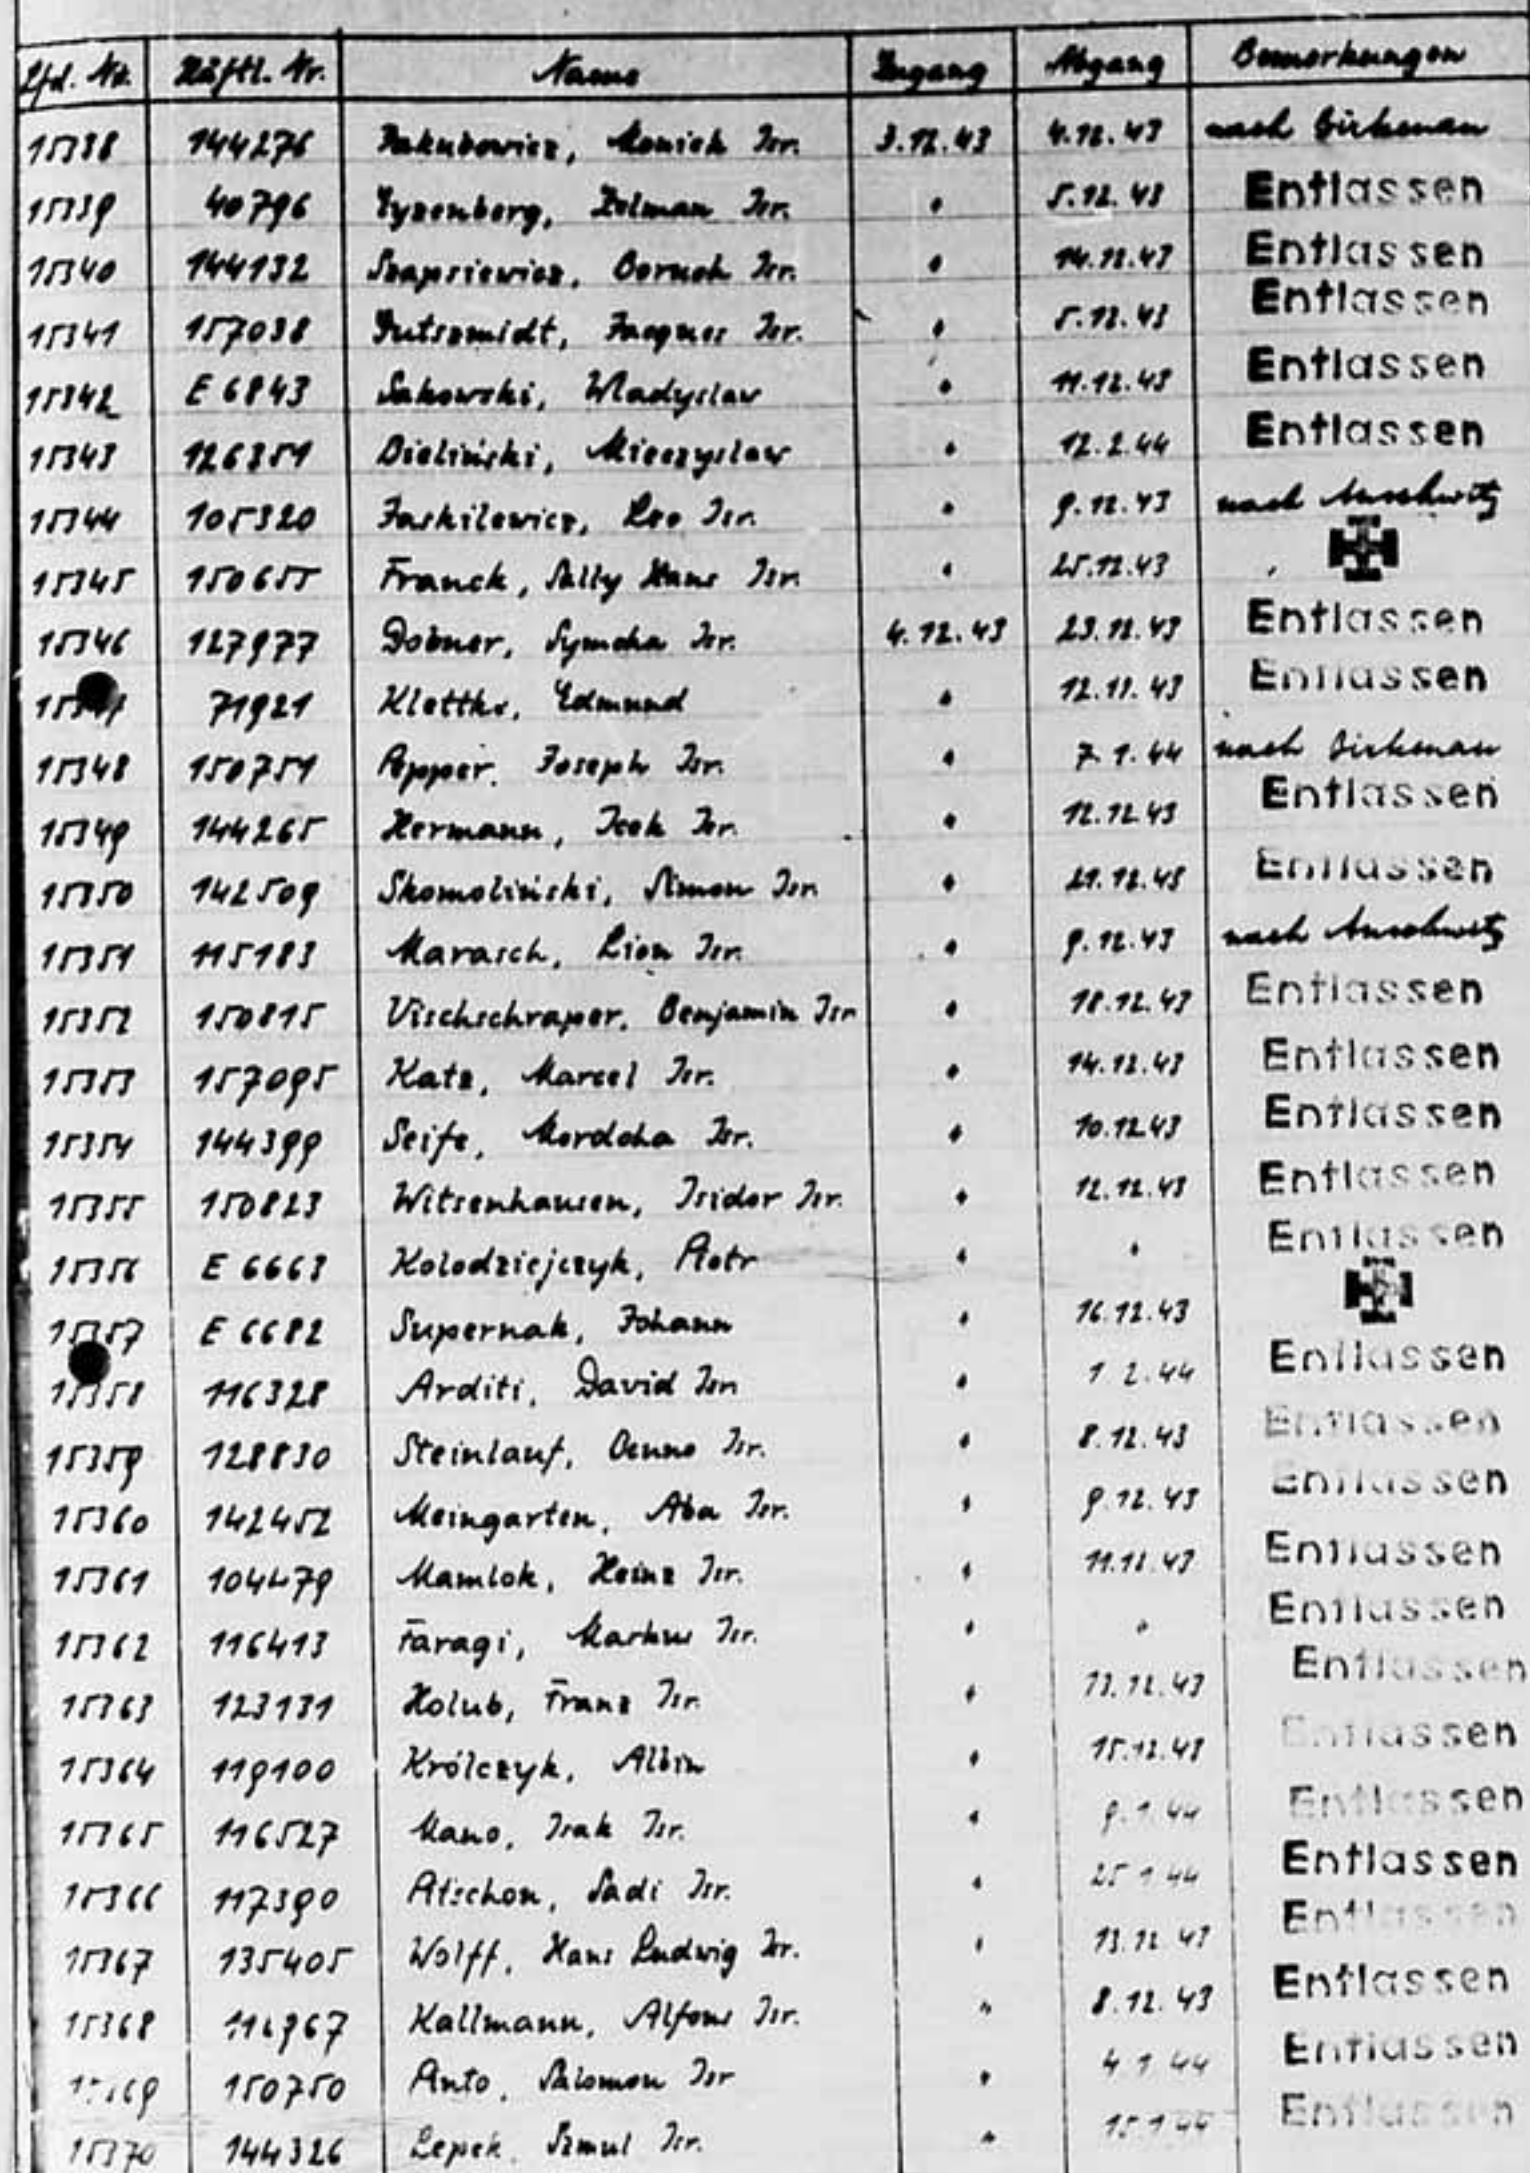 Lfd. Nr. Häftl. Nr. Name Zugang Abgang Bemerkungen
15338 144276 Jakubowicz, Moniek Isr. 3.12.43 4.12.43 nach Birkenau
15339 40796 Eyzenberg, Zelman Isr. " 5.12.43 Entlassen
15340 144132 Szapsiewicz, Boruch Isr. " 14.12.43 Entlassen
15341 157038 Gutszmidt, Jacques Isr. " 5.12.43 Entlassen
15342 E 6843 Sakowski, Wladyslaw " 11.12.43 Entlassen
15343 126351 Bieliński, Mieczyslaw " 12.2.44 Entlassen
15344 105320 Jaskilewicz, Leo Isr. " 9.12.43 nach Auschwitz
15345 150655 Franck, Sally Hans Isr. " 25.12.43
15346 127977 Dobner, Symcha Isr. 4.12.43 23.12.43 Entlassen
71921 Klettke, Edmund " 12.12.43 Entlassen
15348 150751 Apper, Joseph Isr. " 7.1.44 nach Birkenau
15349 144265 Hermann, Icek Isr. " 12.12.43 Entlassen
15350 142509 Skomoliński, Simon Isr. " 21.12.43 Entlassen
15351 115183 Marasch, Lion Isr. " 9.12.43 nach Auschwitz
15352 150815 Vischschraper, Benjamin Isr " 18.12.43 Entlassen
15353 157095 Katz, Marcel Isr. " 14.12.43 Entlassen
15354 144399 Seife, Mordcha Isr. " 10.12.43 Entlassen
15355 150823 Witsenhausen, Isidor Isr. " 12.12.43 Entlassen
15356 E 6663 Kolodziejczyk, Piotr " " Entlassen
15357 E 6682 Supernak, Johann " 16.12.43
15358 116328 Arditi, David Isr. " 1.2.44 Entlassen
15359 128830 Steinlauf, Benno Isr. " 8.12.43 Entlassen
15360 142452 Meingarten, Aba Isr. " 9.12.43 Entlassen
15361 104479 Mamlok, Heinz Isr. " 11.12.43 Entlassen
15362 116413 Faragi, Markus Isr. " " Entlassen
15363 123131 Holub, Franz Isr. " 13.12.43 Entlassen
15364 119100 Królczyk, Albin " 15.12.43 Entlassen
15365 116527 Mano, Isak Isr. " 9.1.44 Entlassen
15366 117390 Atschon, Sadi Isr. " 25 1 44 Entlassen
15367 135405 Wolff, Hans Ludwig Isr. " 13.12.43 Entlassen
15368 Kallmann, Alfons Isr. " 8.12.43 Entlassen
150750 Anto, Salomon Isr " 4 1 44 Entlassen
15370 144326 Lepek, Szmul Isr. " 15 1 44 Entlassen